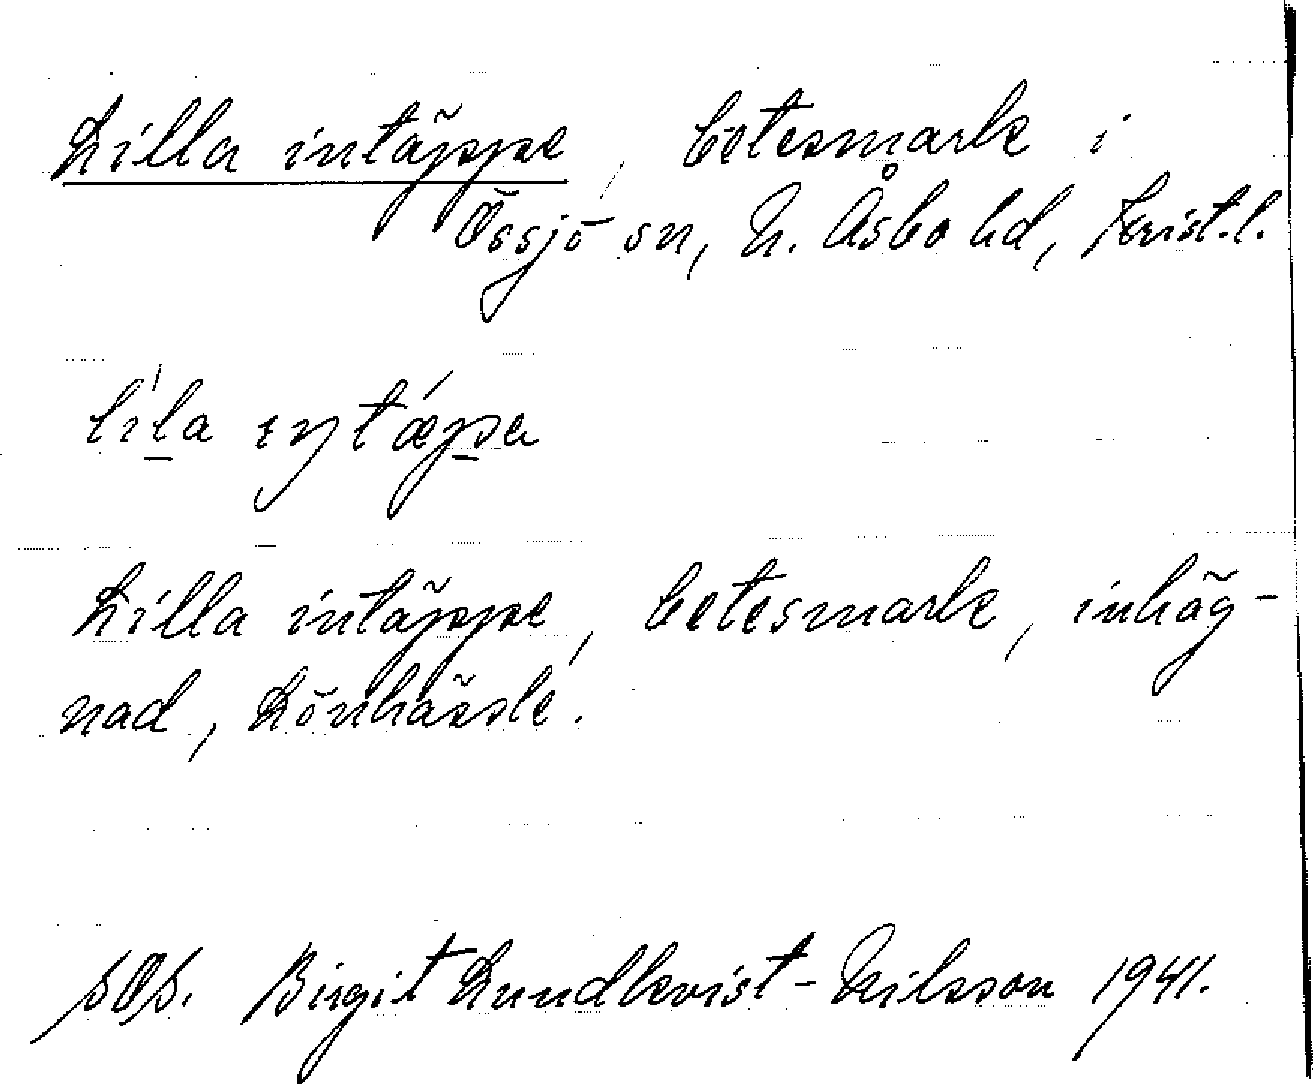 Lilla intäppe, betesmark i
Össjö sn, N. Åsbo hd, Krist.l.
lila intäppe, betesmark, inhäg-
nad, Lönhässle.
Birgit Lundkvist-Nilsson 1941.